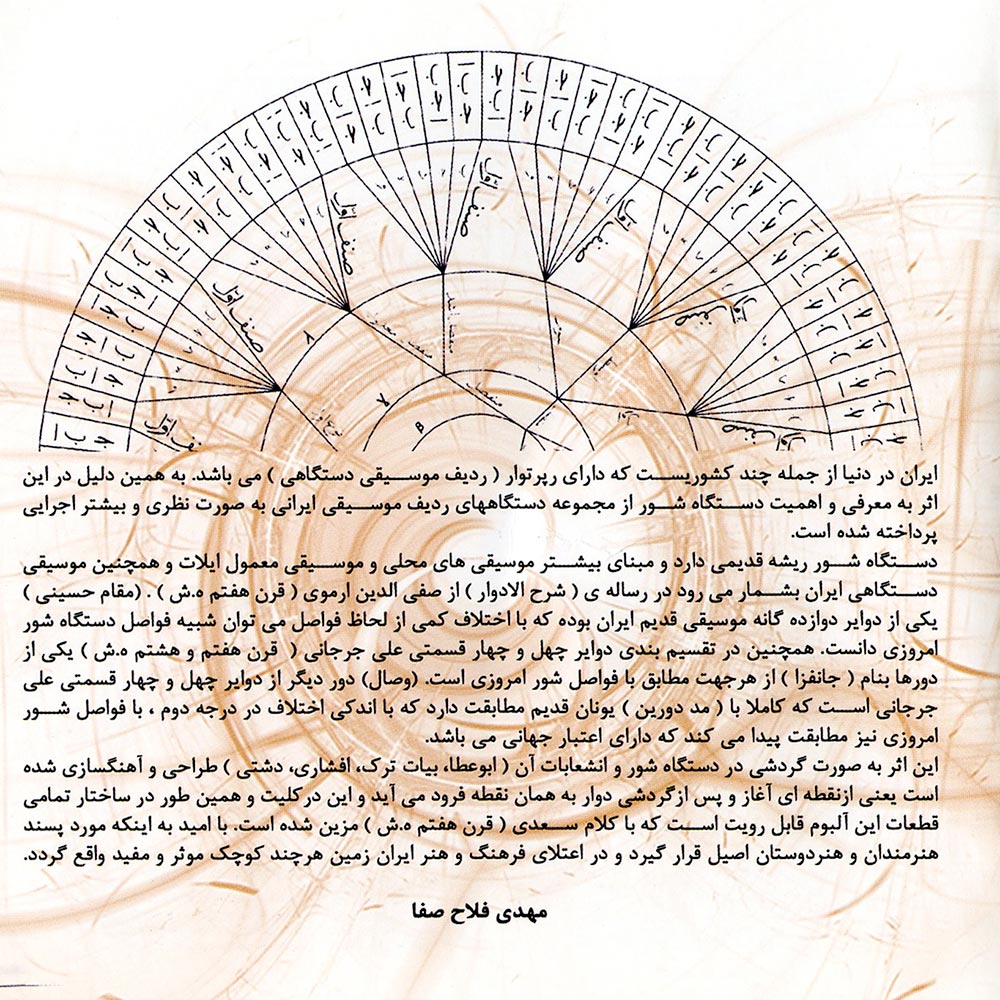 صنف اوّل
صنف اوّل
صنف اوّل
صنف اوّل
صنف اوّل
صنف اوّل
صنف اوّل
ایران در دنیا از جمله چند کشوریست که دارای رپرتوار ( ردیف موسیقی دستگاهی ) می باشد. به همین دلیل در این
اثر به معرفی و اهمیت دستگاه شور از مجموعه دستگاههای ردیف موسیقی ایرانی به صورت نظری و بیشتر اجرایی
پرداخته شده است.
دستگاه شور ریشه قدیمی دارد و مبنای بیشتر موسیقی های محلی و موسیقی معمول ایلات و همچنین موسیقی
دستگاهی ایران بشمار می رود در رساله ی ( شرح الادوار ) از صفی الدین ارموی ( قرن هفتم ه.ش ) . (مقام حسینی )
یکی از دوایر دوازده گانه موسیقی قدیم ایران بوده که با اختلاف کمی از لحاظ فواصل می توان شبیه فواصل دستگاه شور
امروزی دانست. همچنین در تقسیم بندی دوایر چهل و چهار قسمتی علی جرجانی ( قرن هفتم و هشتم ه.ش ) یکی از
دورها بنام ( جانفزا ) از هرجهت مطابق با فواصل شور امروزی است. (وصال) دور دیگر از دوایر چهل و چهار قسمتی علی
جرجانی است که کاملا با ( مد دورین ) یونان قدیم مطابقت دارد که با اندکی اختلاف در درجه دوم ، با فواصل شور
امروزی نیز مطابقت پیدا می کند که دارای اعتبار جهانی می باشد.
این اثر به صورت گردشی در دستگاه شور و انشعابات آن ( ابوعطا، بیات ترک، افشاری، دشتی ) طراحی و آهنگسازی شده
است یعنی ازنقطه ای آغاز و پس ازگردشی دوار به همان نقطه فرود می آید و این درکلیت و همین طور در ساختار تمامی
قطعات این آلبوم قابل رویت است که با کلام سعدی ( قرن هفتم ه.ش ) مزین شده است. با امید به اینکه مورد پسند
هنرمندان و هنردوستان اصیل قرار گیرد و در اعتلای فرهنگ و هنر ایران زمین هرچند کوچک موثر و مفید واقع گردد.
مهدی فلاح صفا